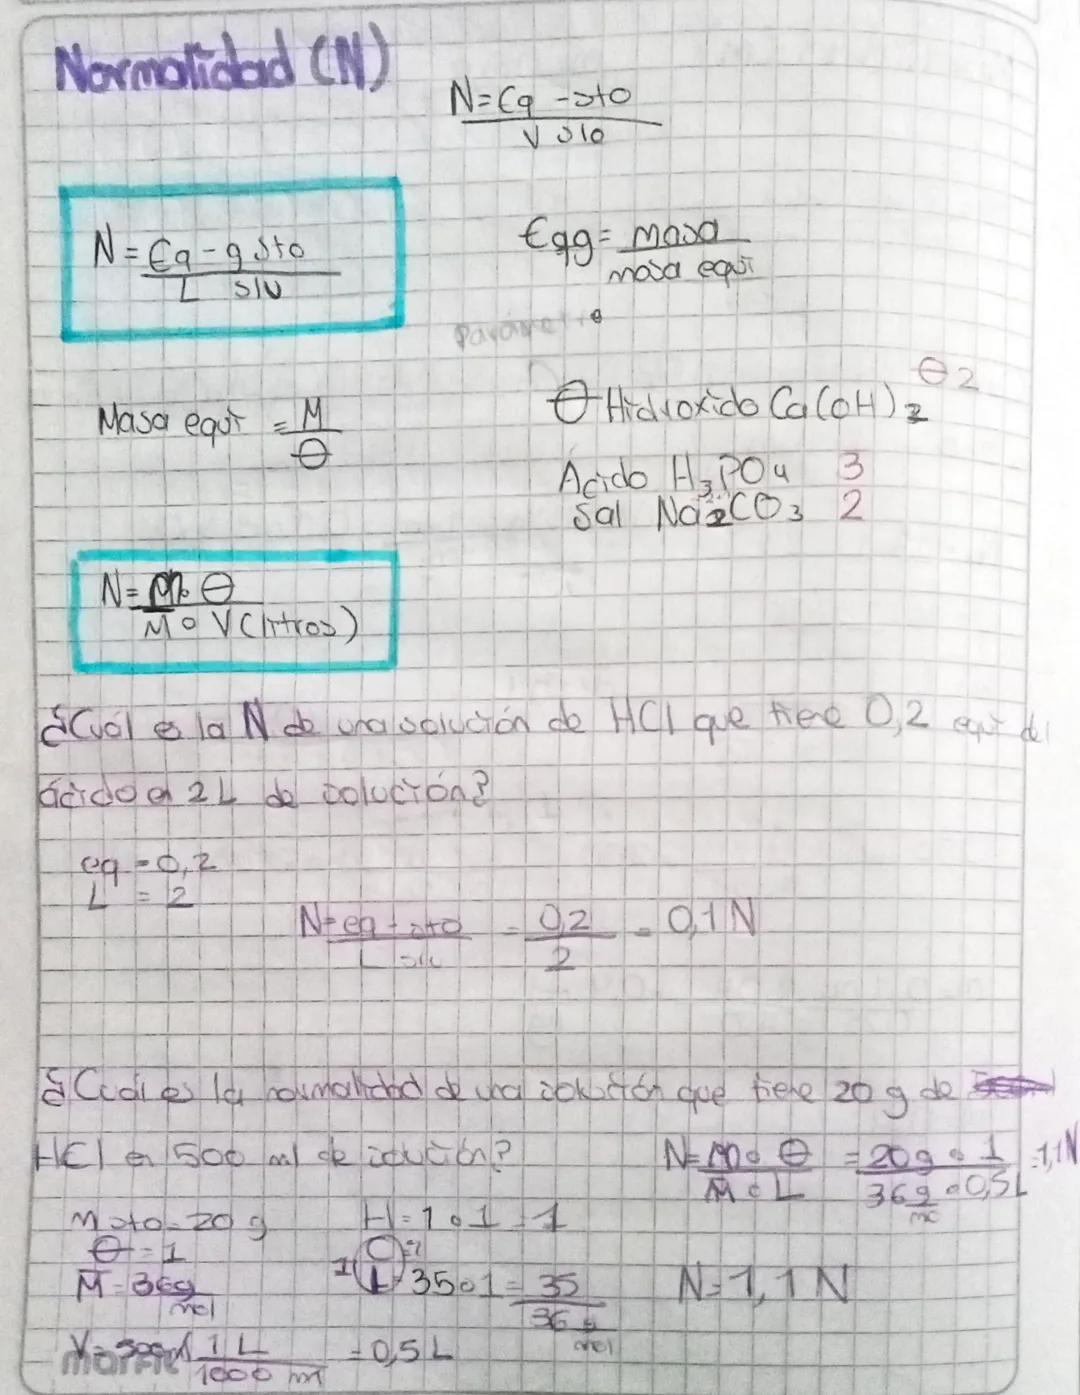 Normalidad (N)
N = Eq - sto
V slo
N = Eq - g sto
L slu
Eqg = masa
masa equi
Parámetro
Masa equi = M
θ
θ 2
θ Hidroxido Ca(OH)2
Acido H3PO4 3
Sal Na2CO3 2
N = m∘ θ
M ∘ V (litros)
¿Cuál es la N de una solución de HCl que tiene 0,2 equi del
ácido en 2 L de solución?
eq = 0,2
L = 2
N = eq - sto = 0,2 = 0,1 N
L slu 2
¿Cuál es la normalidad de una solución que tiene 20 g de
HCl en 500 ml de solución?
N = m∘ θ = 20g ∘ 1 = 1,1N
M ∘ L 36 g ∘ 0,5 L
M sto = 20 g
H = 1 ∘ 1 = 1
θ = 1
M = 36g
mol
35∘1 = 35
36 g
mol
N = 1,1 N
1 L = 0,5 L
1000 ml